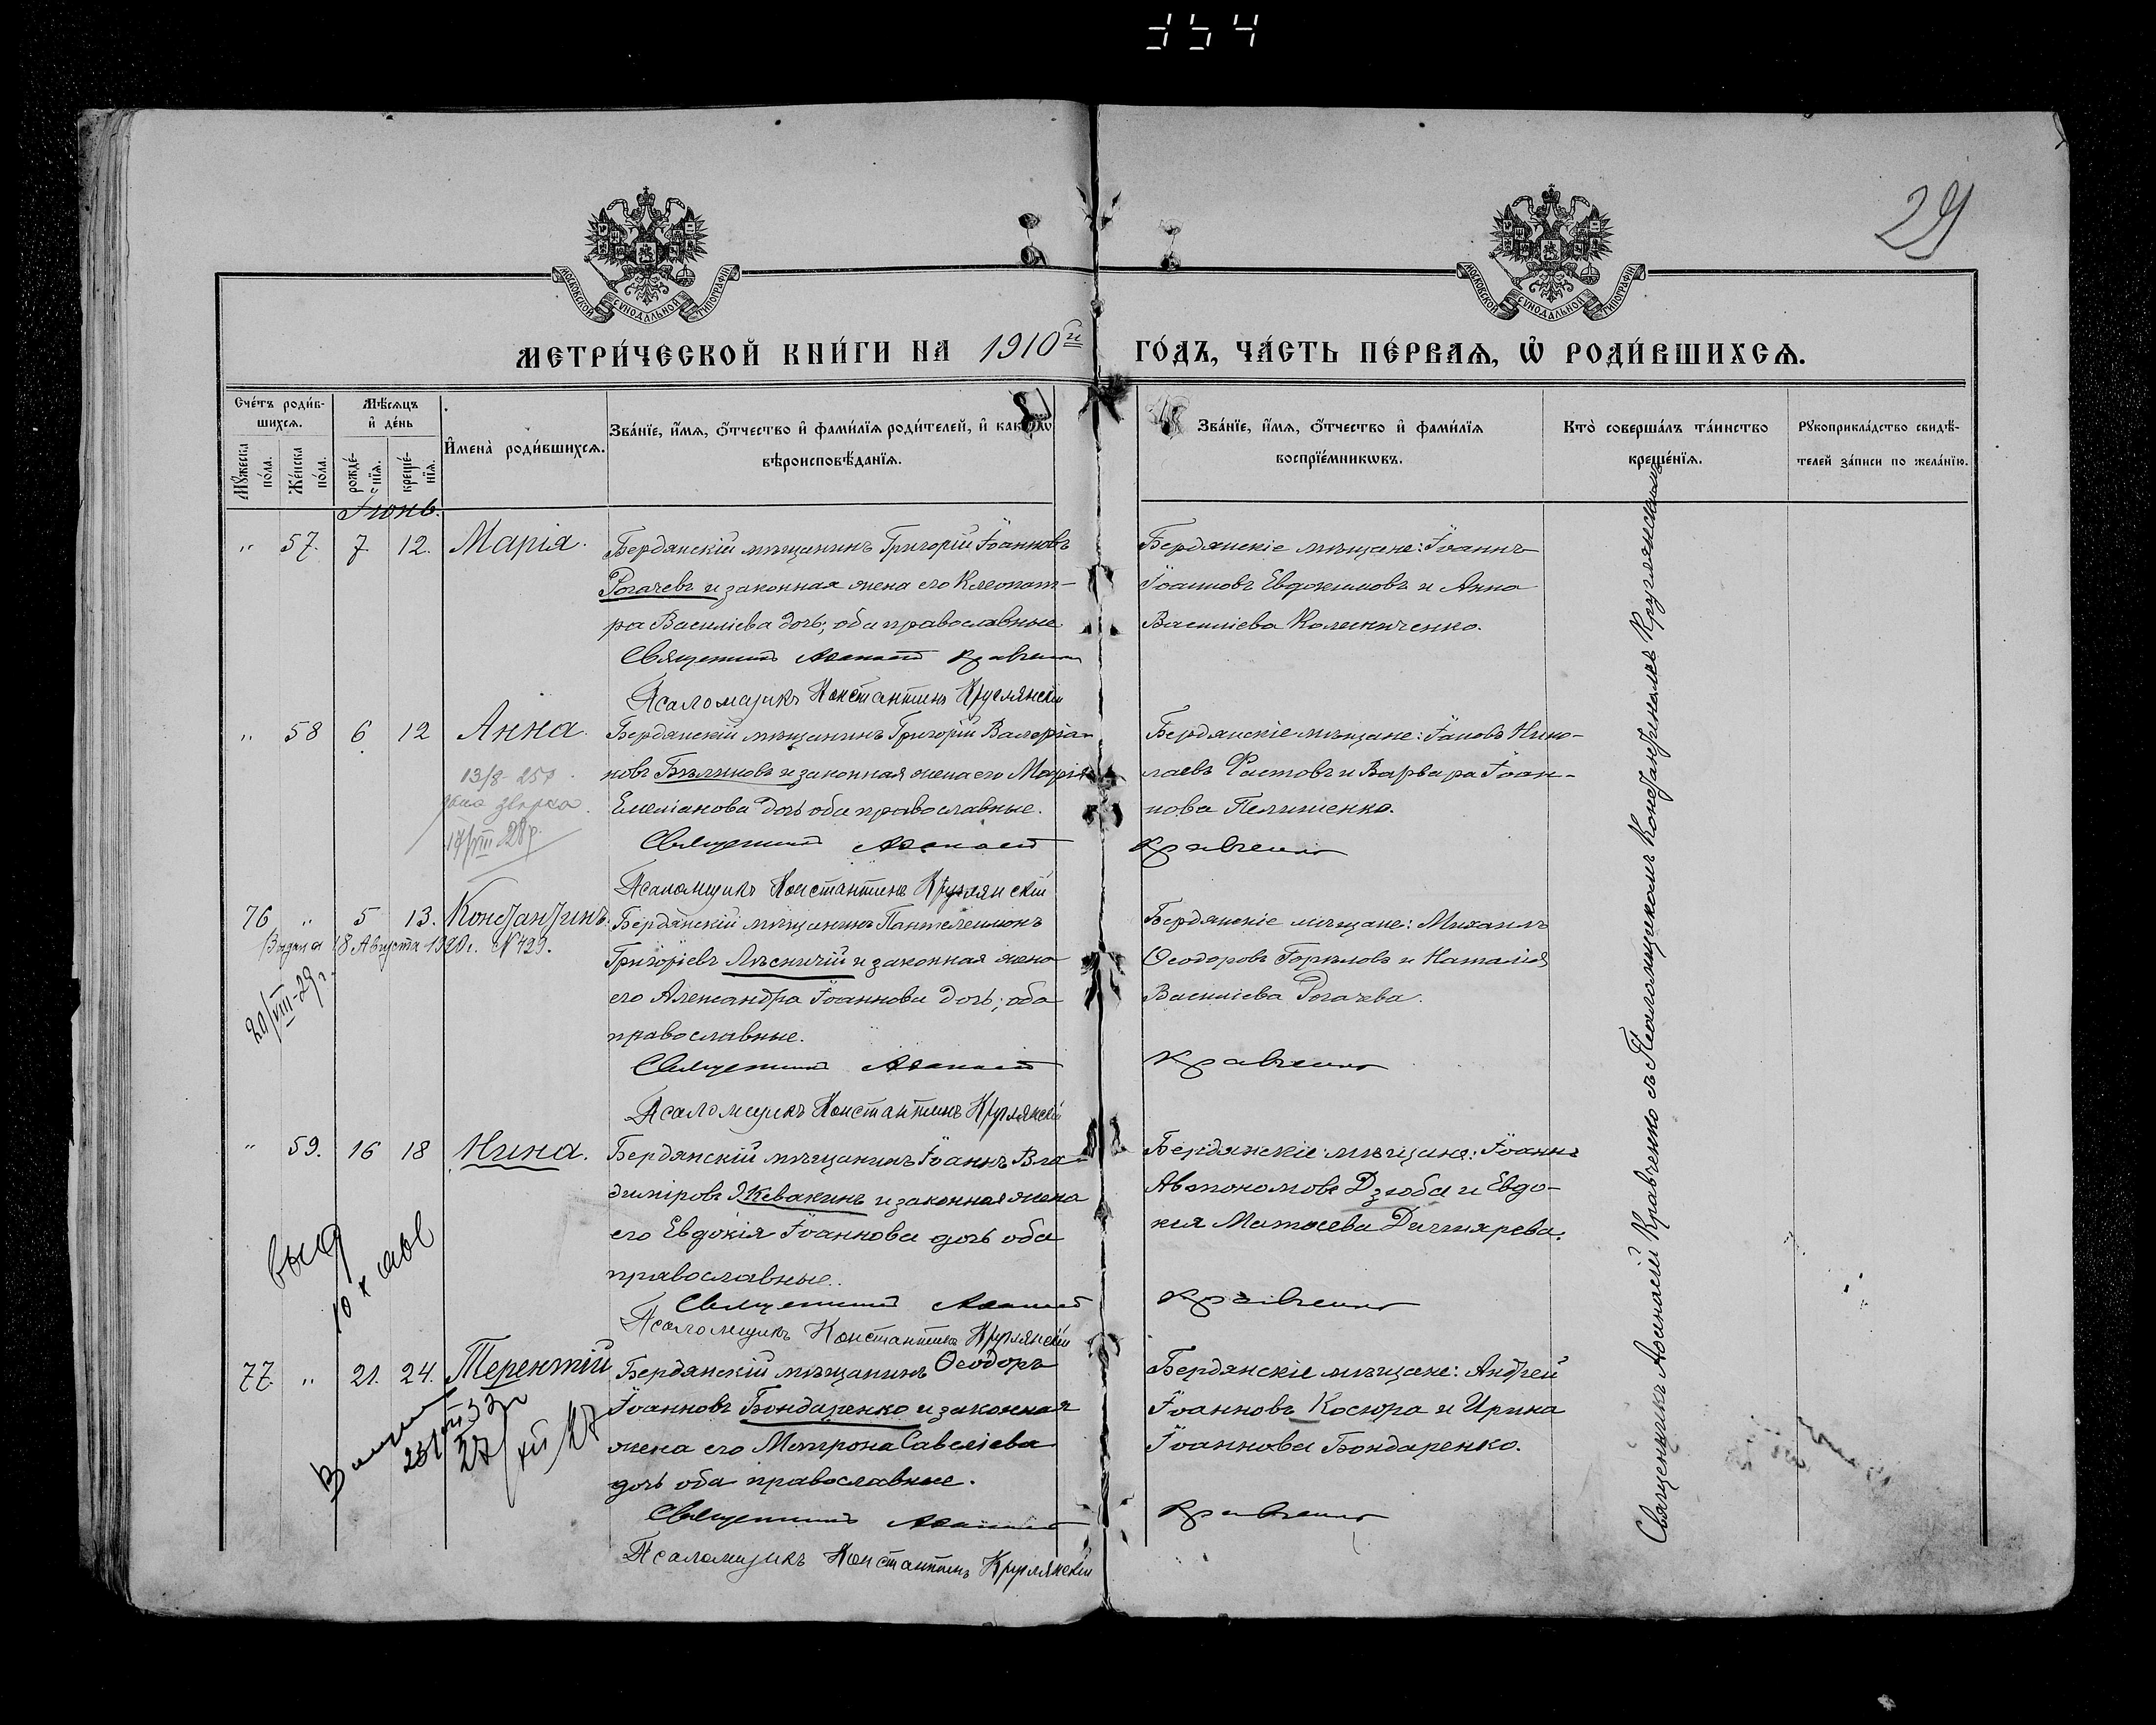 354
29
МОСКОВСКОЙ СѴНОДАЛЬНОЙ ТИПОГРАФІИ
МОСКОВСКОЙ СѴНОДАЛЬНОЙ ТИПОГРАФІИ
МЕТРИ́ЧЕСКОЙ КНИ́ГИ НА 1910й ГО́ДЪ, ЧА́СТЬ ПЕ́РВАѦ, Ѡ҆ РОДИ́ВШИХСѦ.
Сче́тъ роди́в-
шихсѧ.
Мꙋ́жеска по́ла.
Же́нска по́ла.
Мѣ́сѧцъ
и҆ де́нь
рожде́-
нїѧ.
креще́-
нїѧ.
И҆мена̀ роди́вшихсѧ.
Зва́нїе, и҆́мѧ, ѻ҆́тчество и҆ фами́лїѧ роди́телей, и҆ како́гѡ
вѣроисповѣ́данїѧ.
Зва́нїе, и҆́мѧ, ѻ҆́тчество и҆ фами́лїѧ
воспрїе́мникѡвъ.
Кто̀ соверша́лъ та́инство
креще́нїѧ.
Рꙋкоприкла́дство свидѣ́-
телей за́писи по жела́нїю.
Іюнь.
" 57. 7. 12. Марія.
Бердянскій мѣщанинъ Григорій Іоанновъ
Рогачевъ и законная жена его Клеопат-
ра Василіева дочь; оба православные.
Священникъ Аѳанасій Кравченко
Псаломщикъ Константинъ Круглянскій
Бердянскіе мѣщане: Іоаннъ
Іоанновъ Евдокимовъ и Анна
Василіева Колесниченко.
" 58 6 12 Анна.
Бердянскій мѣщанинъ Григорій Валеріа-
новъ Бѣликовъ и законная жена его Марія
Емеліанова дочь оба православные.
Священникъ Аѳанасій Кравченко
Псаломщикъ Константинъ Круглянскій
Бердянскіе мѣщане: Іаковъ Нико-
лаевъ Ростовъ и Варвара Іоан-
нова
17/VIII-28р.
76 " 5 13. Константинъ.
Выдана 18 Августа 1920г. №429.
20/VIII-29г.
Бердянскій мѣщанинъ Пантелеимонъ
Григоріевъ Лѣсничій и законная жена
его Александра Іоаннова дочь; оба
православные.
Священникъ Аѳанасій Кравченко
Псаломщикъ Константинъ Круглянскій
Бердянскіе мѣщане: Михаилъ
Ѳеодоровъ Горѣловъ и Наталія
Василіева Рогачева.
" 59. 16 18 Нина.
Бердянскій мѣщанинъ Іоаннъ Вла-
диміровъ Жевакинъ и законная жена
его Евдокія Іоаннова дочь оба
православные.
Священникъ Аѳанасій Кравченко
Псаломщикъ Константинъ Круглянскій
Бердянскіе мѣщане: Іоаннъ
Автономовъ Дзюба и Евдо-
кія Матѳеева
77. " 21. 24. Терентій
Бердянскій мѣщанинъ Ѳеодоръ
Іоанновъ Бондаренко и законная
жена его Матрона Савеліева
дочь оба православные.
Священникъ Аѳанасій Кравченко
Псаломщикъ Константинъ Круглянскій
Бердянскіе мѣщане: Андрей
Іоанновъ Косюра и Ирина
Іоаннова Бондаренко.
Священникъ Аѳанасій Кравченко съ Псаломщикомъ Константиномъ Круглянскимъ